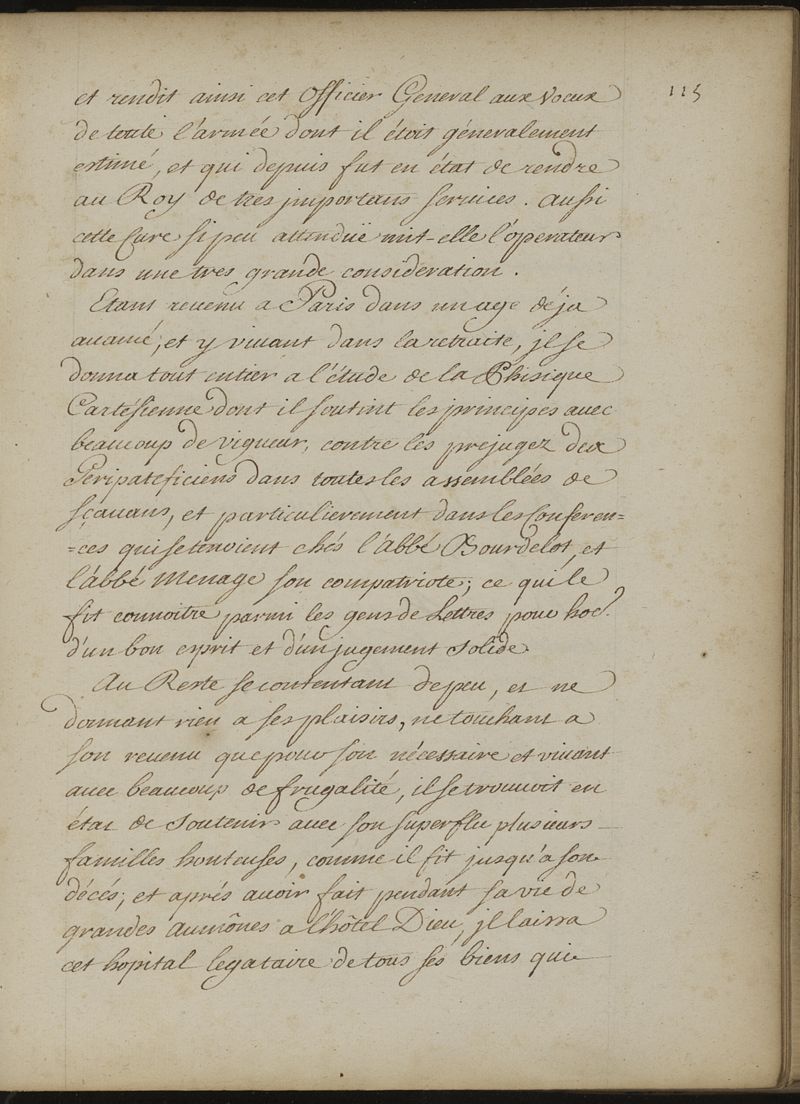 115
et rendit ainsi cet Officier General aux voeux
de toute l'armée dont il étoit géneralement
estimé, et qui depuis fut en état de rendre
au Roy de tres jmportans seruices. Aussi
cette Cure si peu attenduë mit-elle l'operateur
dans une tres grande consideration.
Etant reuenu a Paris dans un age déja
auancé, et y viuant dans la retraite, jl se
donna tout entier a l'étude de la Phisique
Cartésienne dont il soutint les principes auec
beaucoup de vigueur, contre les prejugez deux
Peripateficiens dans toutes les assemblées de
sçauans, et particulierement dans les Conferen=
=ces qui se tenoient chés l'Abbé Bourdelot, et
l'abbé Menage son compatriote; ce qui le
fit connoitre parmi les gens de Lettres pour hoe.
d'un bon esprit et d'un jugement solide.
Au Reste se contentant de peu, et ne
donnant rien a ses plaisirs, ne touchant a
son reuenu que pour son nécessaire et viuant
auec beaucoup de frugalité, il se trouuoit en
état de soutenir auec son superflu plusieurs
familles honteuses, comme il fit jusqu'a son
décés; et aprés auoir fait pendant sa vie de
grandes aumônes a l'hôtel Dieu, jl laissa
cet hopital legataire de tous ses biens qui